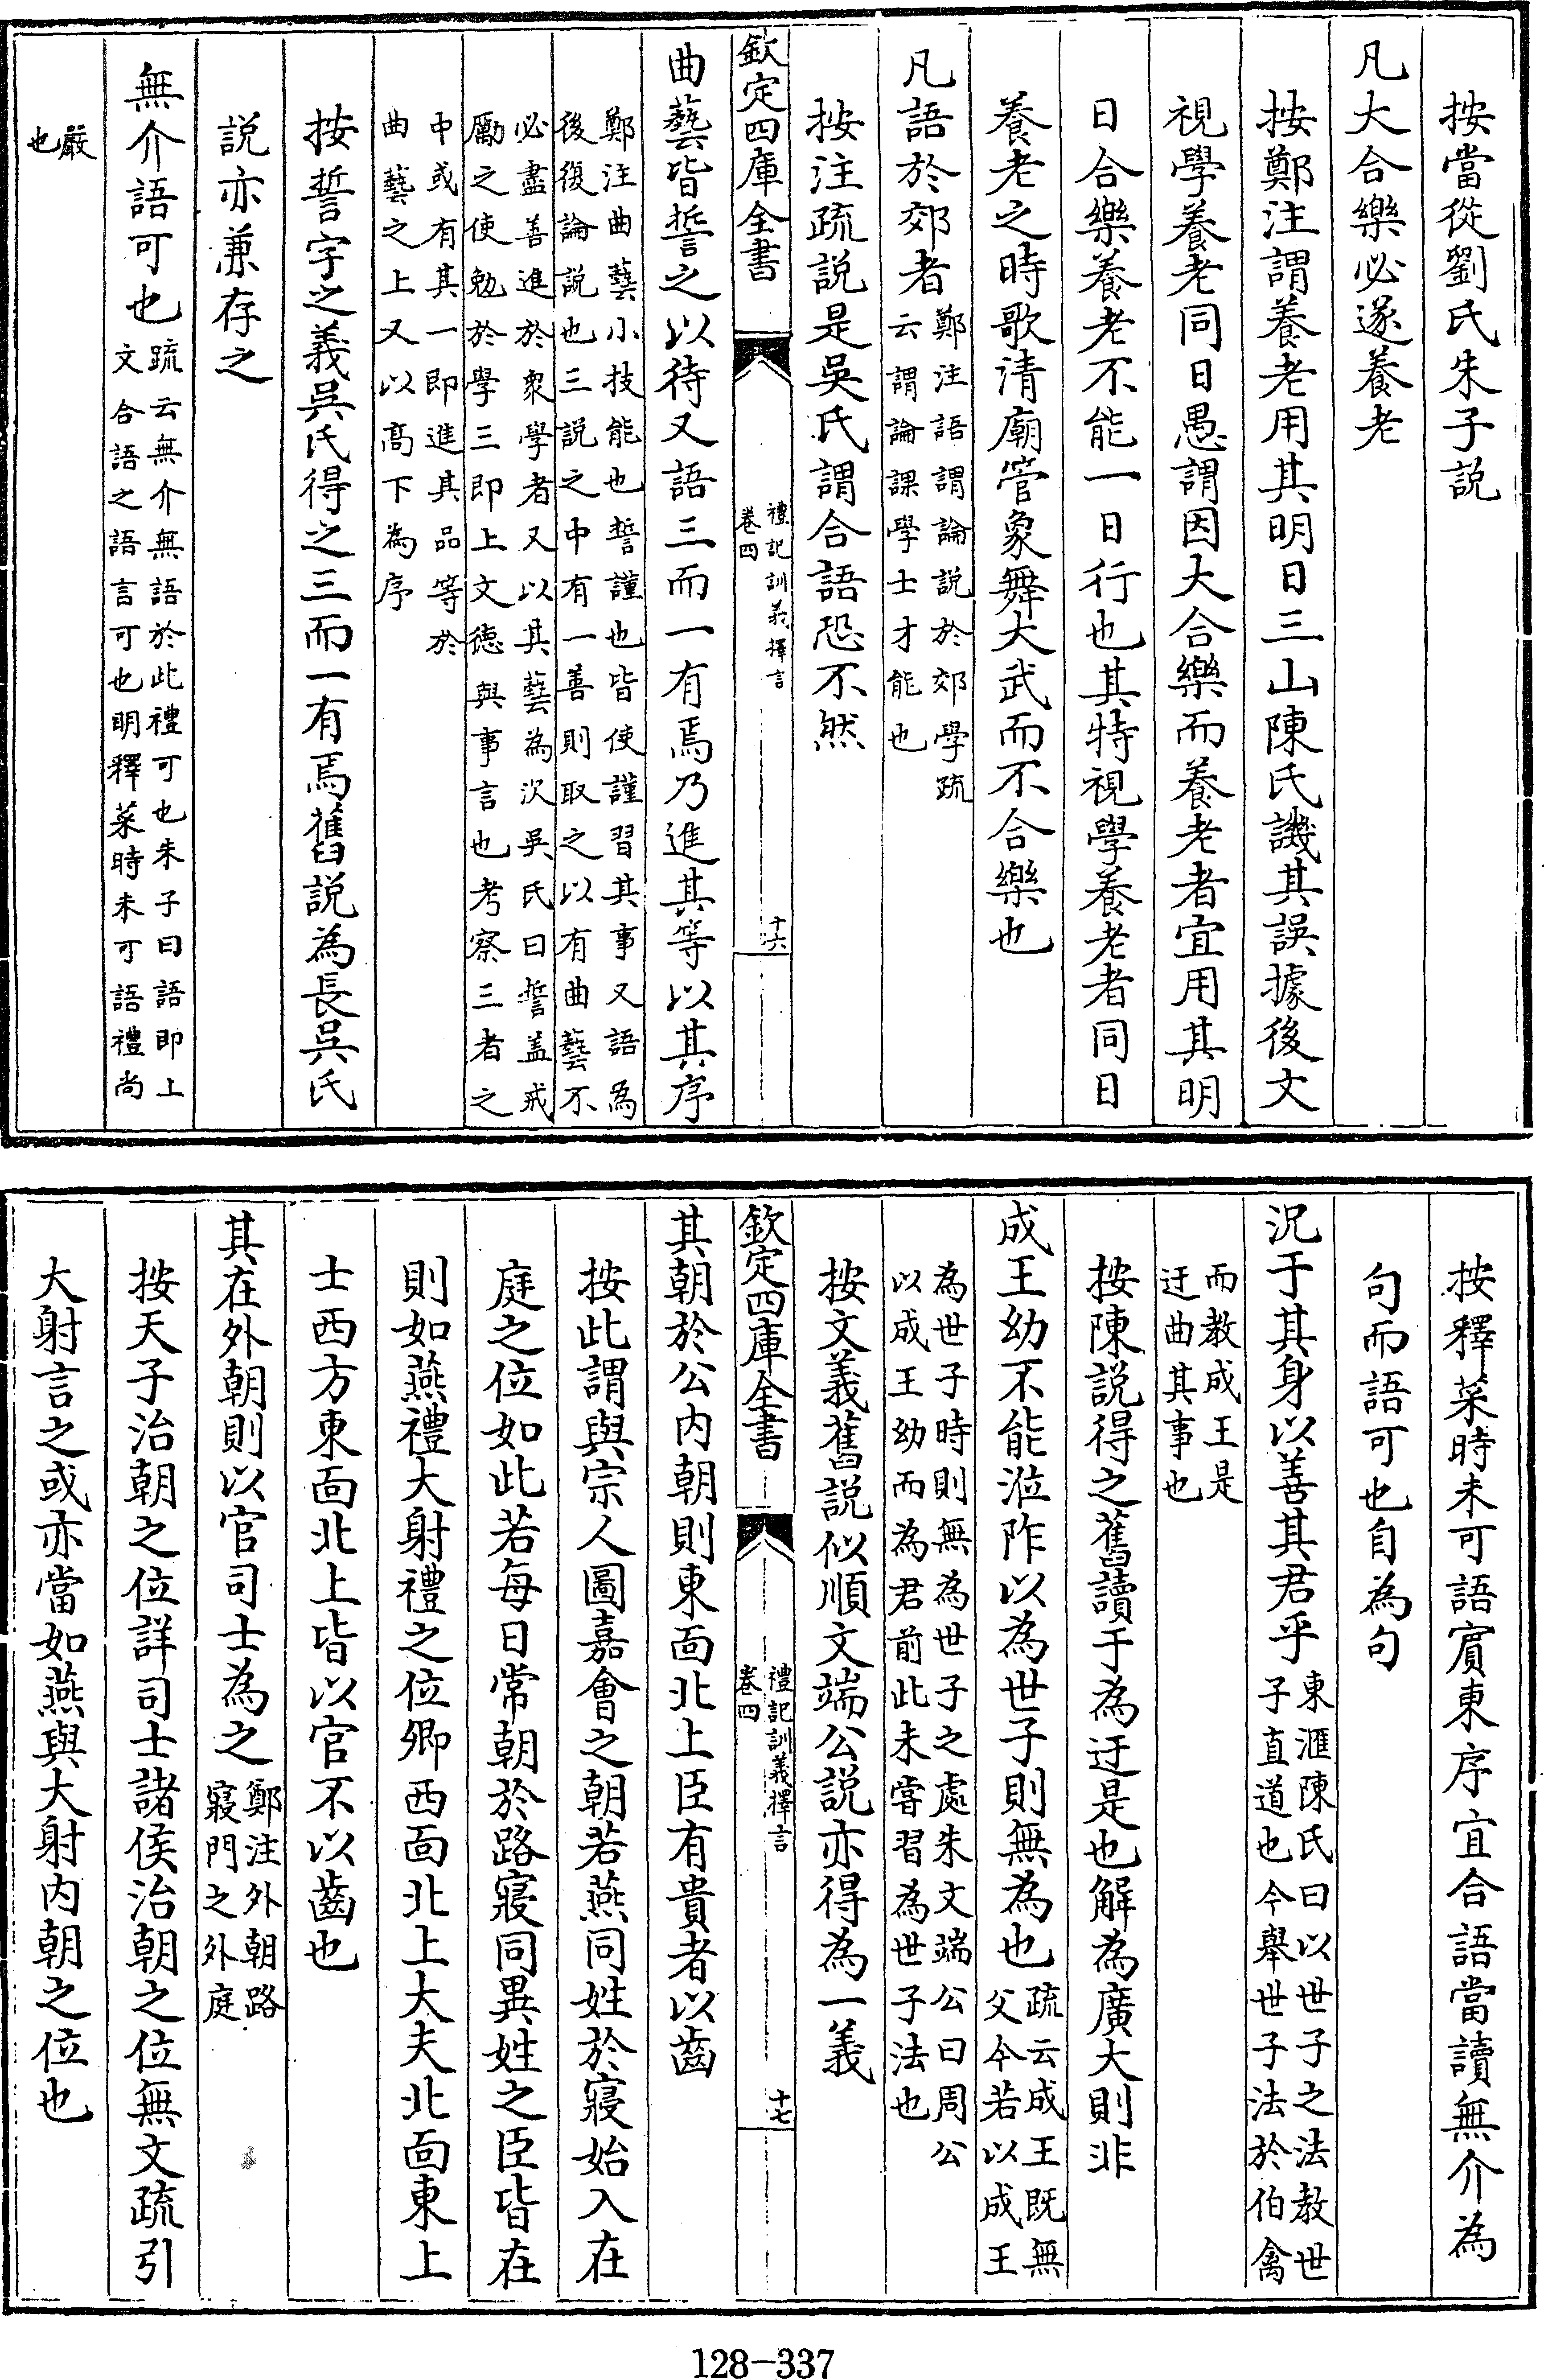 按當從劉氏朱子説
凡大合樂必遂養老
按鄭注謂養老用其明日三山陳氏譏其誤據後文
視學養老同日愚謂因大合樂而養老者宜用其明
日合樂養老不能一日行也其特視學養老者同日
養老之時歌清廟管象舞大武而不合樂也
凡語於郊者鄭注語謂論説於郊學疏
云謂論課學士才能也
按注疏説是吳氏謂合語恐不然
欽定四庫全書
禮記訓義擇言
卷四
十六
曲藝皆誓之以待又語三而一有焉乃進其等以其序
鄭注曲藝小技能也誓謹也皆使謹習其事又語為
後復論説也三説之中有一善則取之以有曲藝不
必盡善進於衆學者又以其藝為次吳氏曰誓盖戒
勵之使勉於學三即上文德與事言也考察三者之
中或有其一即進其品等於
曲藝之上又以高下為序
按誓字之義吳氏得之三而一有焉舊説為長吳氏
説亦兼存之
無介語可也疏云無介無語於此禮可也朱子曰語即上
文合語之語言可也明釋菜時未可語禮尚
嚴
也
按釋菜時未可語賔東序宜合語當讀無介為
句而語可也自為句
況于其身以善其君乎東滙陳氏曰以世子之法教世
子直道也今舉世子法於伯禽
而教成王是
迂曲其事也
按陳説得之舊讀于為迂是也解為廣大則非
成王幼不能涖阼以為世子則無為也疏云成王既無
父今若以成王
為世子時則無為世子之處朱文端公曰周公
以成王幼而為君前此未嘗習為世子法也
按文義舊説似順文端公説亦得為一義
欽定四庫全書
禮記訓義擇言
卷四
十七
其朝於公内朝則東面北上臣有貴者以齒
按此謂與宗人圖嘉會之朝若燕同姓於寢始入在
庭之位如此若每日常朝於路寢同異姓之臣皆在
則如燕禮大射禮之位卿西面北上大夫北面東上
士西方東面北上皆以官不以齒也
其在外朝則以官司士為之鄭注外朝路
寢門之外庭
按天子治朝之位詳司士諸侯治朝之位無文疏引
大射言之或亦當如燕與大射内朝之位也
128-337